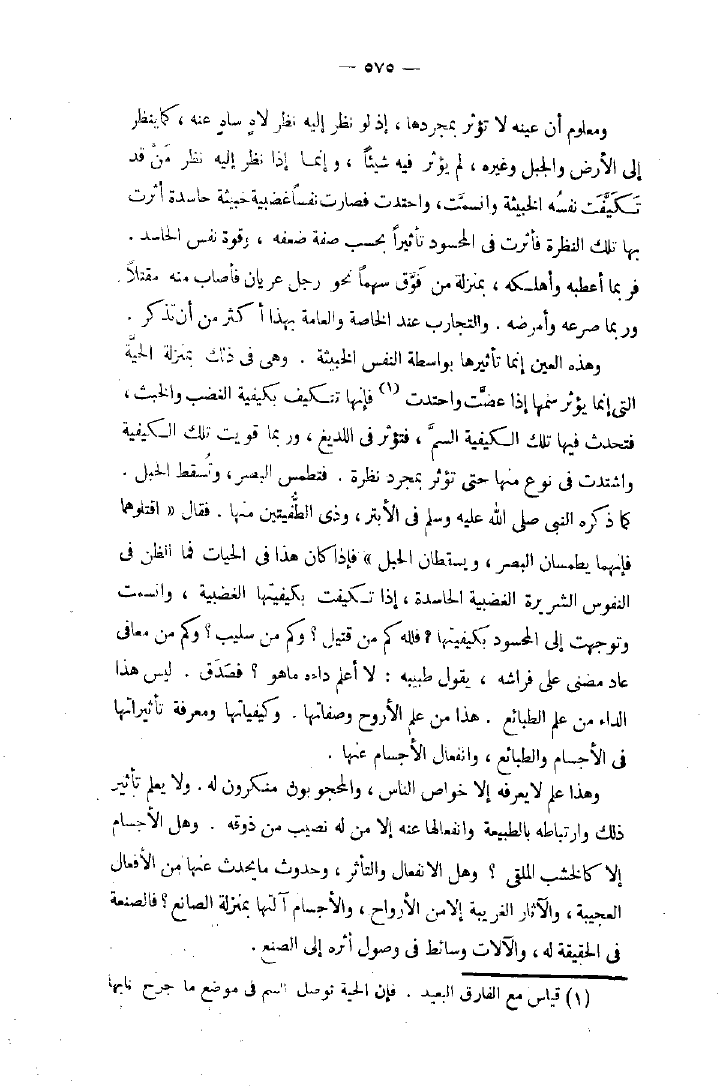 — ٥٧٥ —
ومعلوم أن عينه لا تؤثر بمجردها ، إذ لو نظر إليه نظر لاهٍ ساهٍ عنه ، كما ينظر
إلى الأرض والجبل وغيره ، لم يؤثر فيه شيئاً ، وإنما إذا نظر إليه نظر مَنْ قد
تَكَيَّفَت نفسُه الخبيثة وانسمَّت، واحتدت فصارت نفساً غضبية خبيثة حاسدة أثرت
بها تلك النظرة فأثرت فى المحسود تأثيراً بحسب صفة ضعفه ، وقوة نفس الحاسد .
فربما أعطبه وأهلكه ، بمنزلة من فَوَّق سهماً نحو رجل عريان فأصاب منه مقتلاً .
وربما صرعه وأمرضه . والتجارب عند الخاصة والعامة بهذا أكثر من أن تذكر .
وهذه العين إنما تأثيرها بواسطة النفس الخبيثة . وهى فى ذلك بمنزلة الحيَّة
التى إنما يؤثر سمها إذا عضَّت واحتدت (١) فإنها تتكيف بكيفية الغضب والخبث ،
فتحدث فيها تلك الكيفية السمَّ ، فتؤثر فى اللديغ ، وربما قويت تلك الكيفية
واشتدت فى نوع منها حتى تؤثر بمجرد نظرة . فتطمس البصر ، وتُسقط الحبل .
كما ذكره النبى صلى الله عليه وسلم فى الأبتر ، وذى الطُّفيتين منها . فقال « اقتلوهما
فإنهما يطمسان البصر ، ويسقطان الحبل » فإذا كان هذا فى الحيات فما الظن فى
النفوس الشريرة الغضبية الحاسدة ، إذا تكيفت بكيفيتها الغضبية ، وانسمت
وتوجهت إلى المحسود بكيفيتها ؟ فلله كم من قتيل ؟ وكم من سليب ؟ وكم من معافى
عاد مضنى على فراشه ، يقول طبيبه : لا أعلم داءه ماهو ؟ فصَدَق . ليس هذا
الداء من علم الطبائع . هذا من علم الأروح وصفاتها . وكيفياتها ومعرفة تأثيراتها
فى الأجسام والطبائع ، وانفعال الأجسام عنها .
وهذا علم لا يعرفه إلا خواص الناس ، والمحجوبون منكرون له . ولا يعلم تأثير
ذلك وارتباطه بالطبيعة وانفعالها عنه إلا من له نصيب من ذوقه . وهل الأجسام
إلا كالخشب الملقى ؟ وهل الانفعال والتأثر ، وحدوث مايحدث عنها من الأفعال
العجيبة ، والآثار الغريبة إلا من الأرواح ، والأجسام آلتها بمنزلة الصانع ؟ فالصنعة
فى الحقيقة له ، والآلات وسائط فى وصول أثره إلى الصنع .
(١) قياس مع الفارق البعيد . فإن الحية توصل السم فى موضع ما جرح نابها